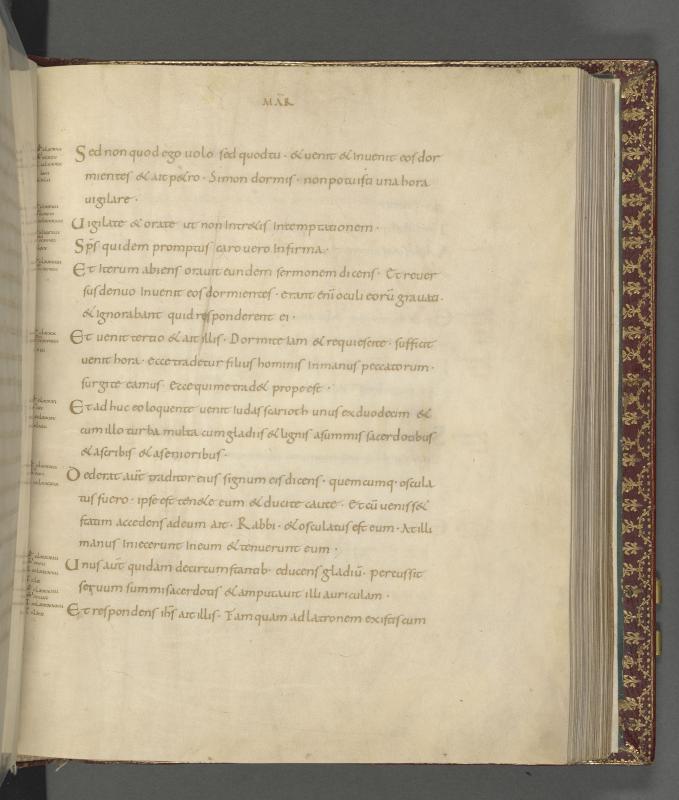 MAR̅
Sed non quod ego uolo sed quod tu · & uenit & inuenit eos dor
mientes & ait p&ro · Simon dormis · non potuisti una hora
uigilare ·
Uigilate & orate ut non intr&is in temptationem ·
Sp̅s quidem promptus caro uero infirma ·
Et iterum abiens orauit eundem sermonem dicens · Et reuer
sus denuo inuenit eos dormientes · erant eni̅ oculi eoru̅ grauati ·
& ignorabant quid responderent ei ·
Et uenit tertio & ait illis · Dormite iam & requiescite · sufficit
uenit hora · ecce tradetur filius hominis in manus peccatorum ·
surgite eamus · Ecce qui me trad& prope est ·
Et adhuc eo loquente uenit iudas scarioth unus ex duodecim &
cum illo turba multa cum gladiis & lignis a summis sacerdotibus
& a scribis & a senioribus ·
Dederat aut̅ traditor eius signum eis dicens · quemcumq· oscula
tus fuero · ipse est ten&e eum & ducite caute · Et cu̅ ueniss&
statim accedens ad eum ait · Rabbi · & osculatus est eum · At illi
manus iniecerunt in eum & tenuerunt eum ·
Unus aut̅ quidam de circumstantib· educens gladiu̅ · percussit
seruum summi sacerdotis & amputauit illi auriculam ·
Et respondens ih̅s ait illis · Tamquam ad latronem existis cum